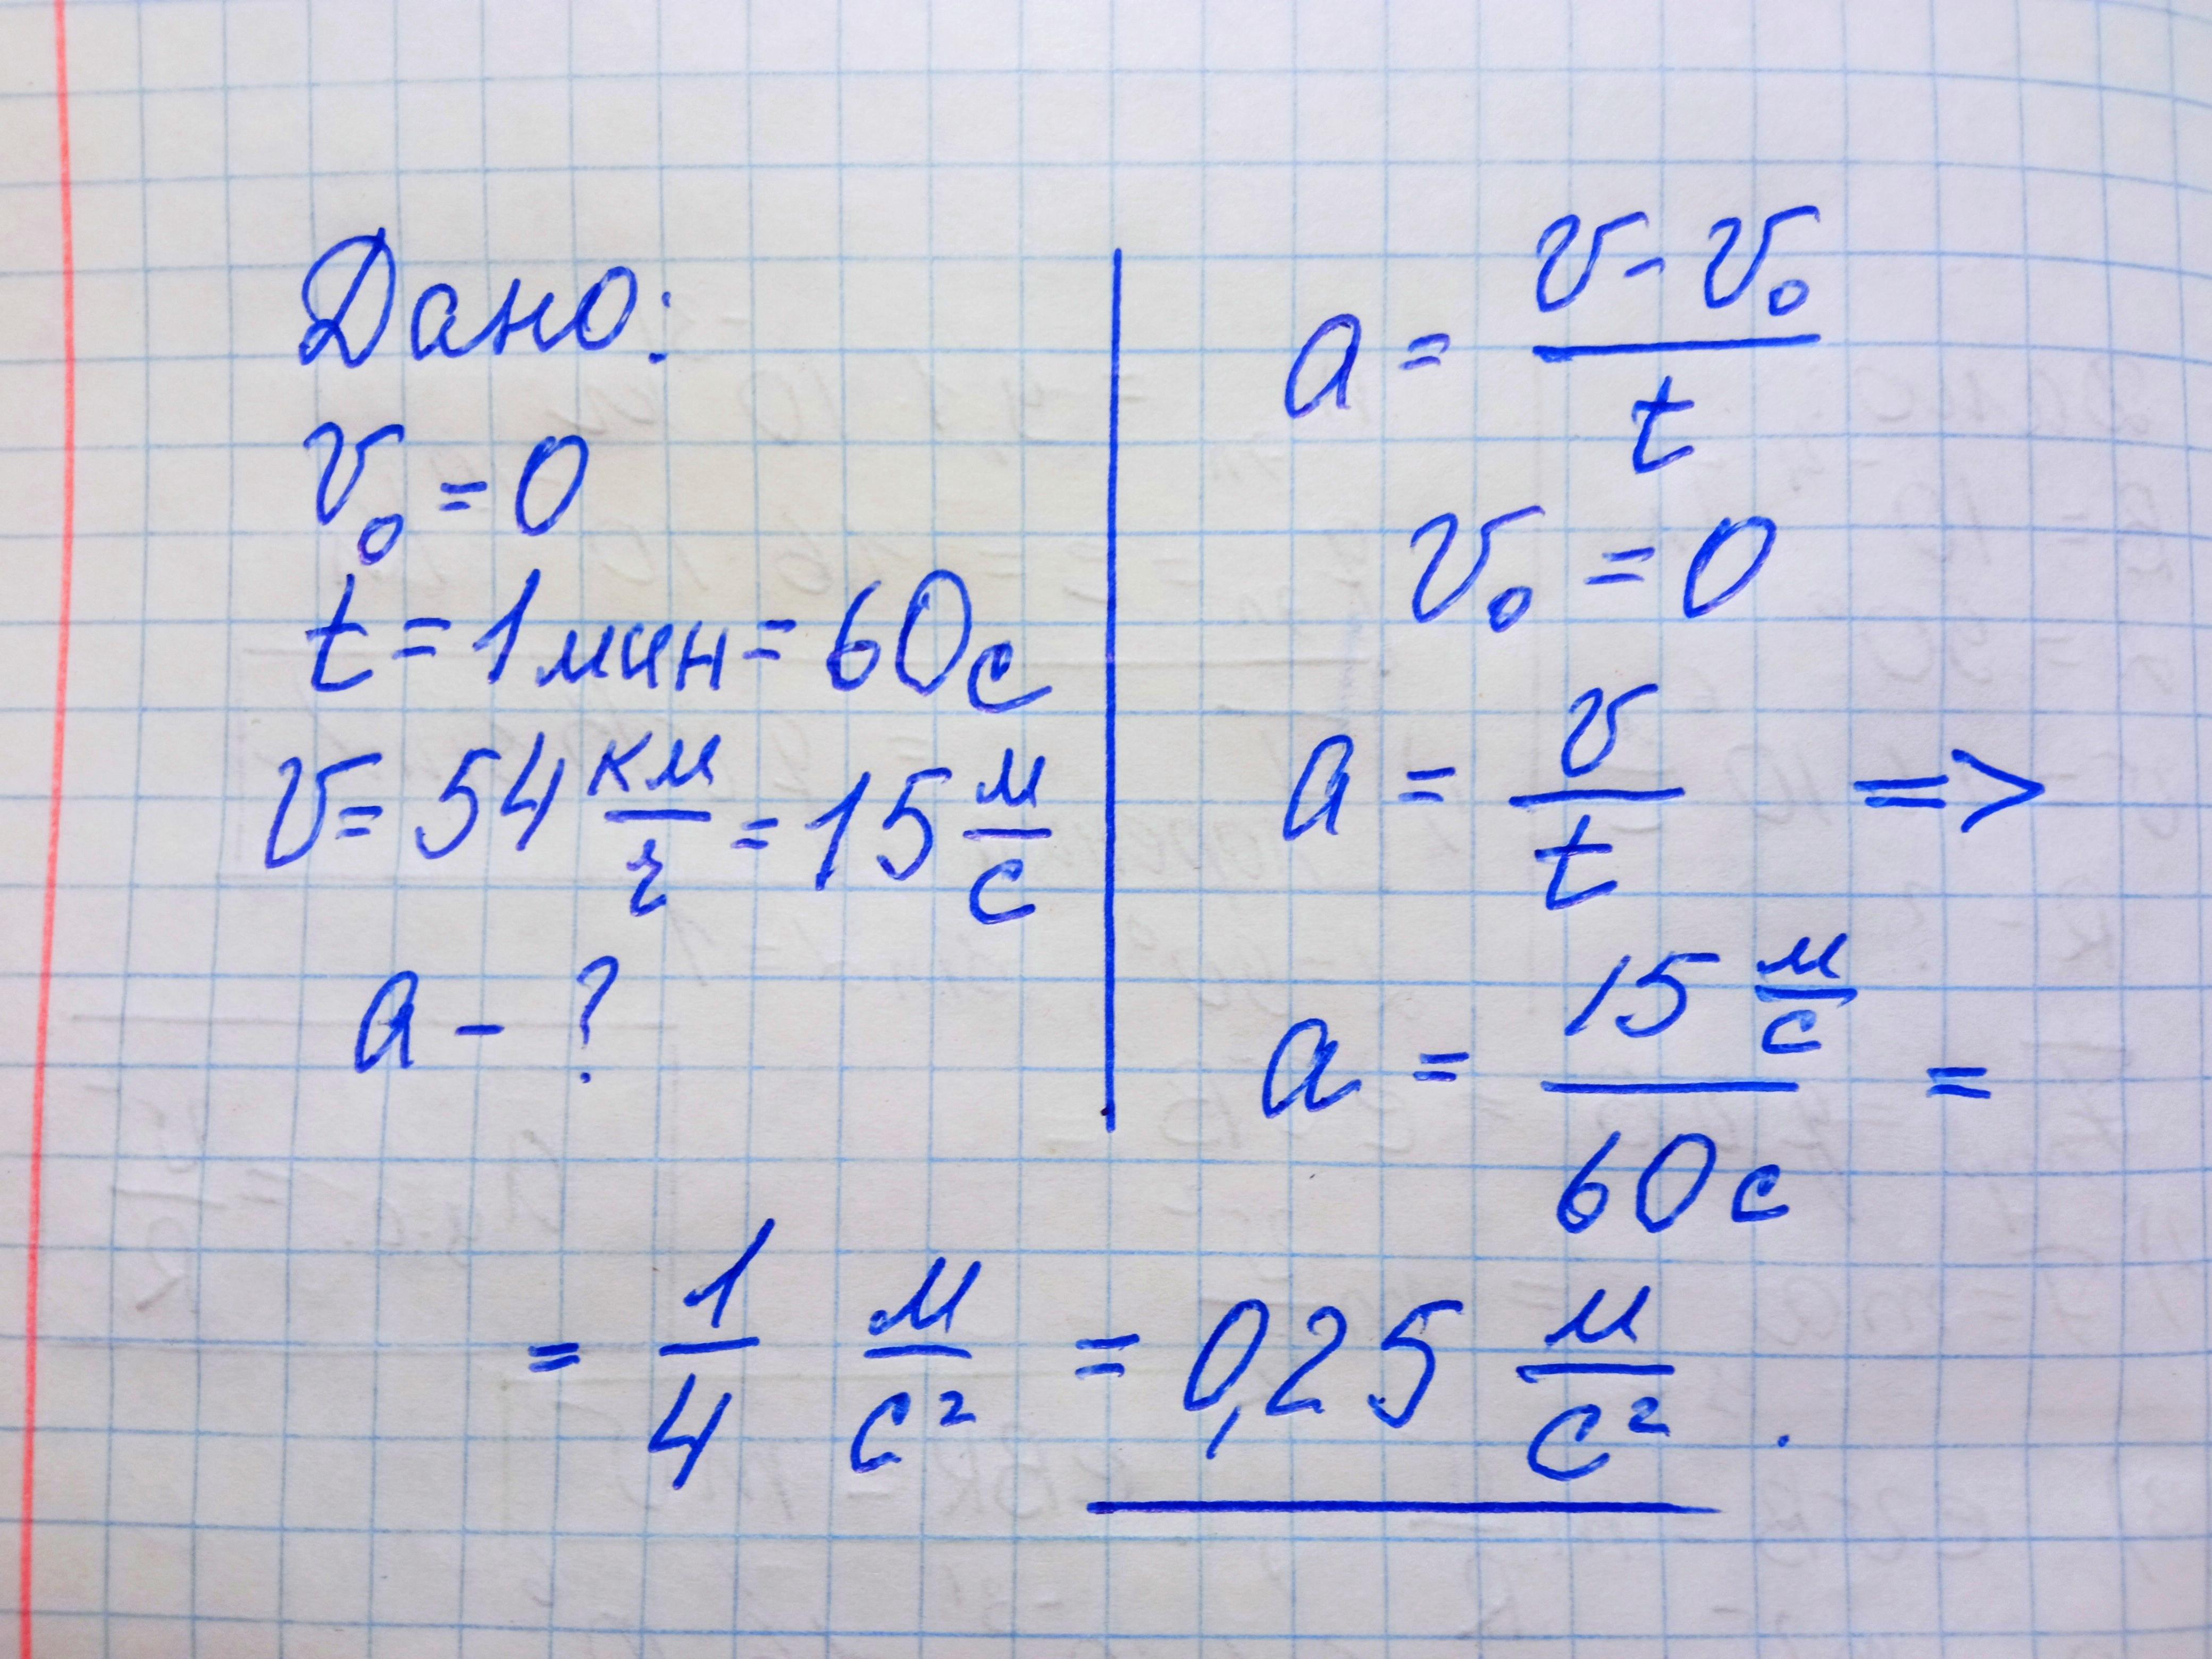 Дано:
v₀ = 0
t = 1 мин = 60 с
v = 54 км/г = 15 м/с
a - ?
a = (v - v₀)/t
v₀ = 0
a = v/t =>
a = (15 м/с)/(60 с) =
= 1/4 м/с² = 0,25 м/с².